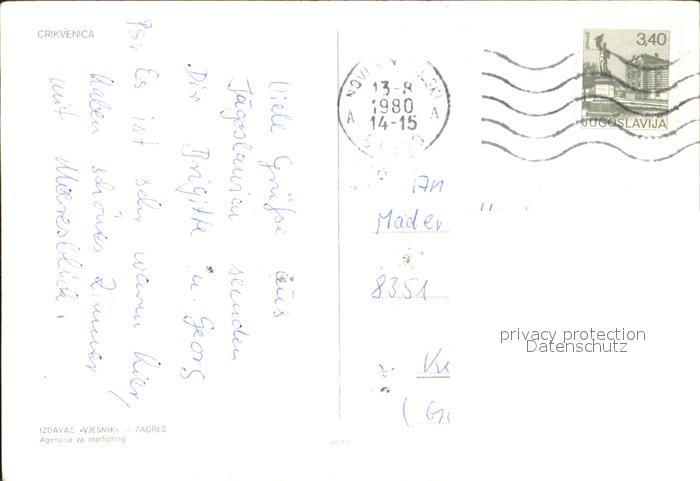 CRIKVENICA
Viele Grüße aus
Jugoslawien senden
Dir Brigitte u. Georg
PS; Es ist sehr warm hier,
haben schönes Zimmer
mit Meeresblick.
IZDAVAČ «VJESNIK» — ZAGREB
Agencija za marketing
NOVI
13-8
1980
14-15
A A
3,40
JUGOSLAVIJA
An
Mader
8351
privacy protection
Datenschutz